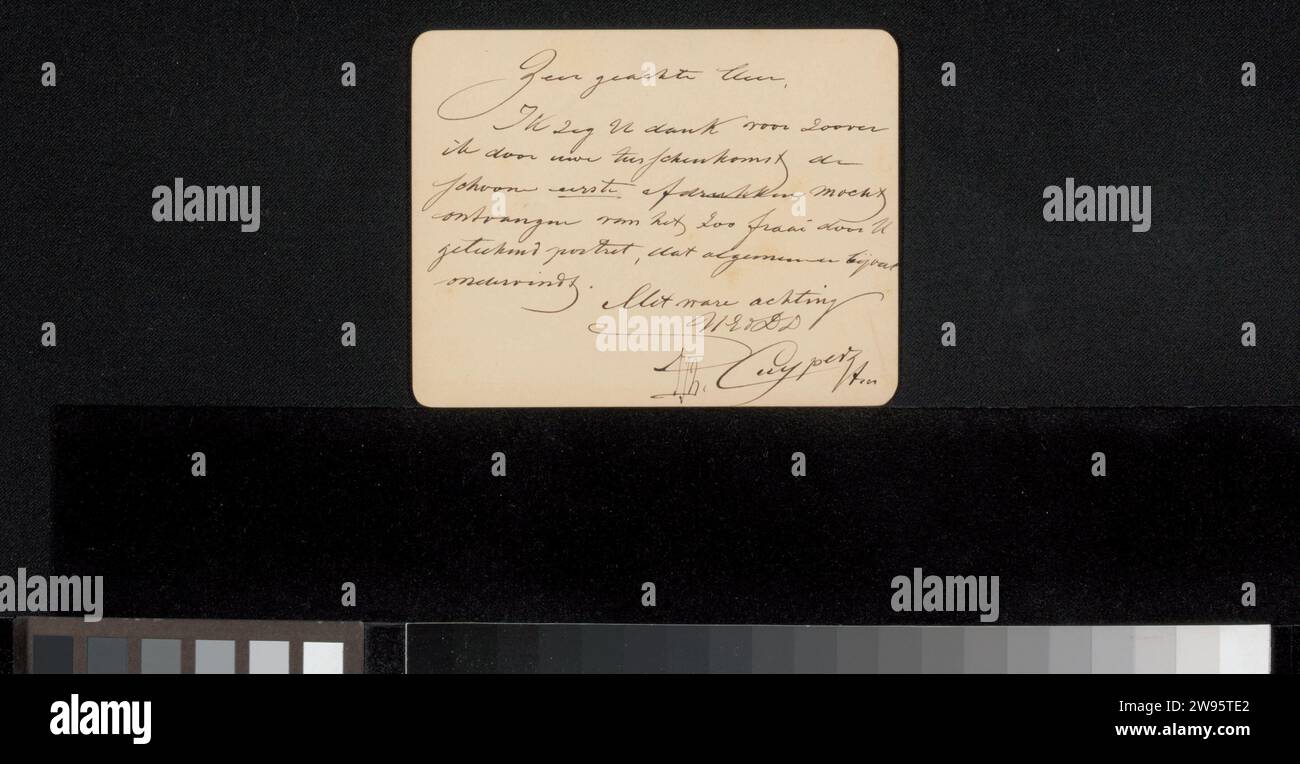 Zeer geachte Heer,
Ik zeg U dank voor zoover
ik door uwe tusschenkomst de
schoone eerste afdrukken mocht
ontvangen van het zoo fraai door U
geteekend portret, dat algemeene bijval
ondervindt.
Met ware achting
UEdDD
Th. Cuypers
alamy
Image ID: 2W95TE2
www.alamy.com